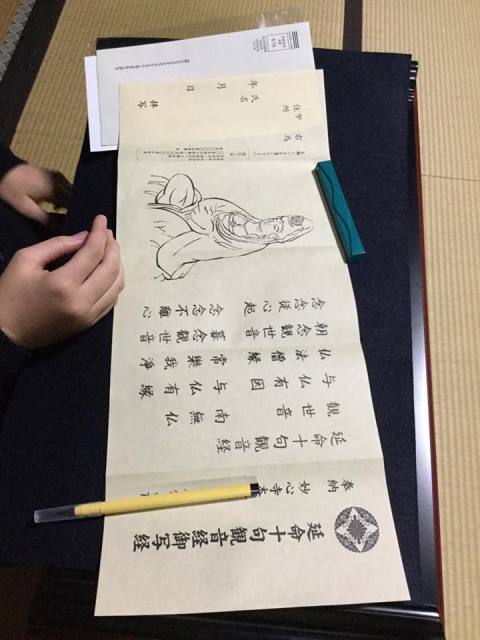 延命十句觀音経御写経
奉納 妙心寺
延命十句觀音経
觀世音 南無仏
与仏有因 与仏有縁
仏法僧縁 常樂我淨
朝念觀世音 暮念觀世音
念念從心起 念念不離心
右為
住所 〒
氏名
年 月 日 拝写